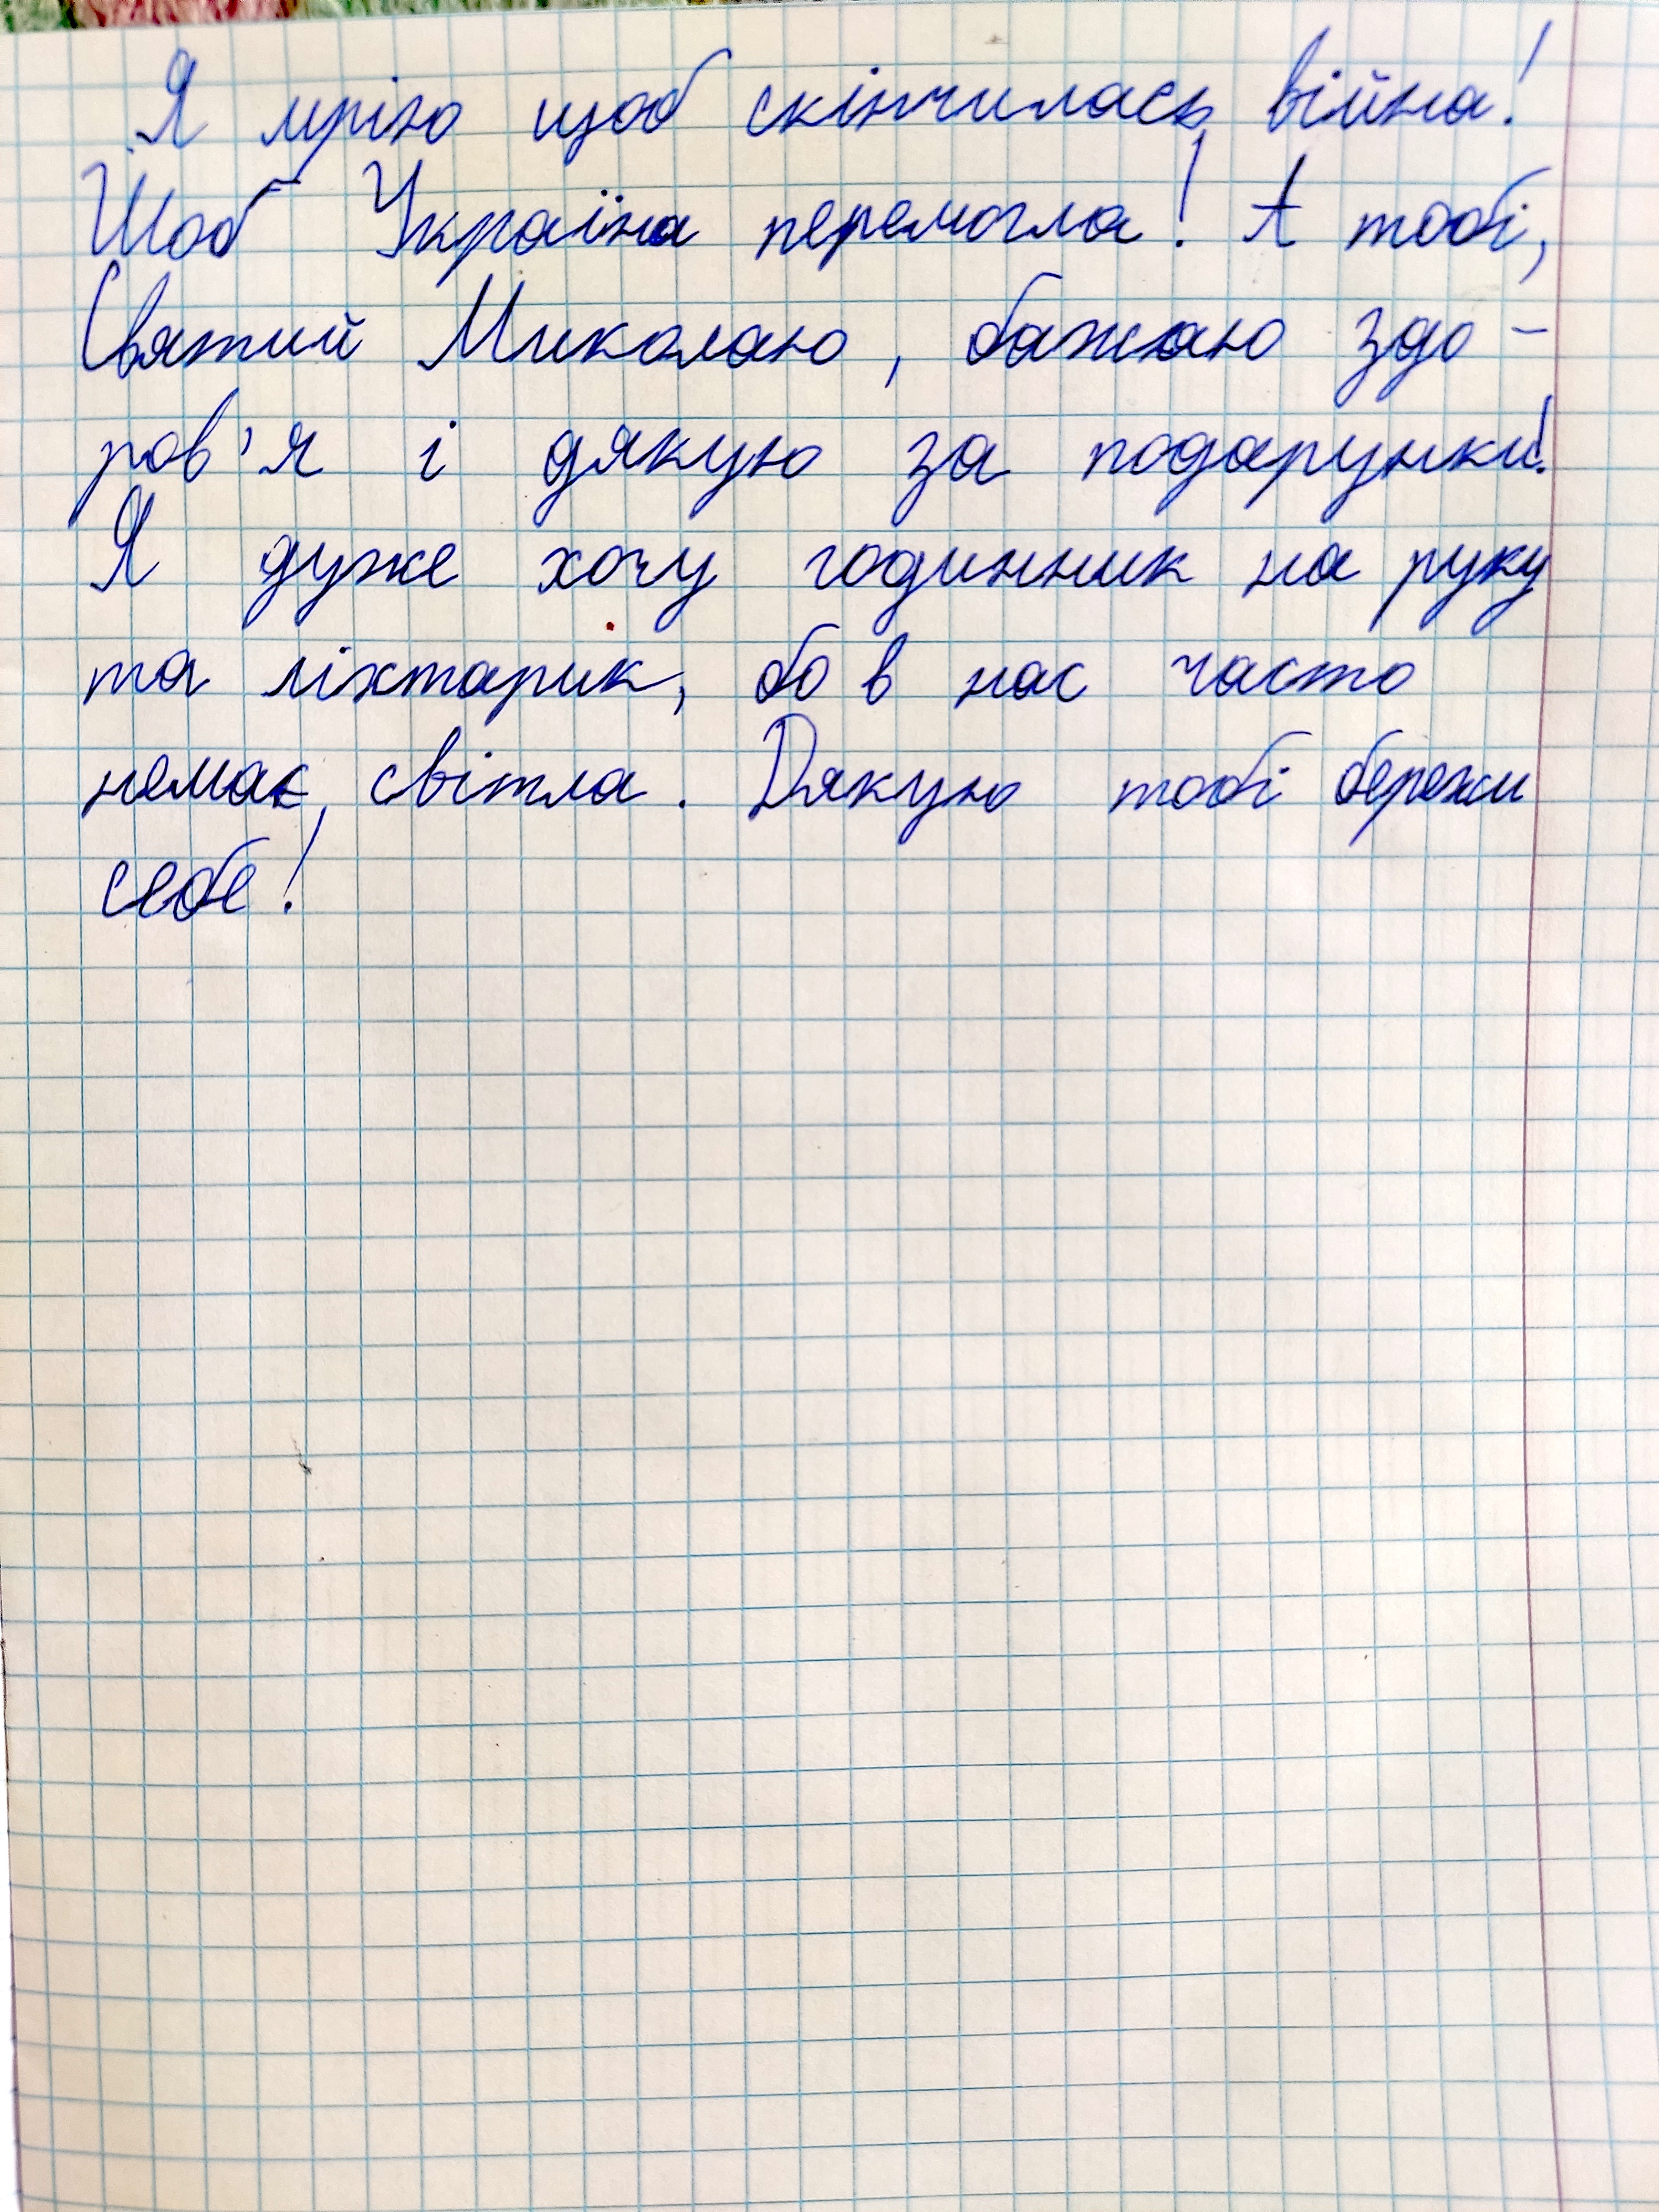 Я мрію щоб скінчилась війна!
Щоб Україна перемогла! А тобі,
Святий Миколаю, бажаю здо-
ров'я і дякую за подарунки!
Я дуже хочу годинник на руку
та ліхтарик, бо в нас часто
немає світла. Дякую тобі бережи
себе!